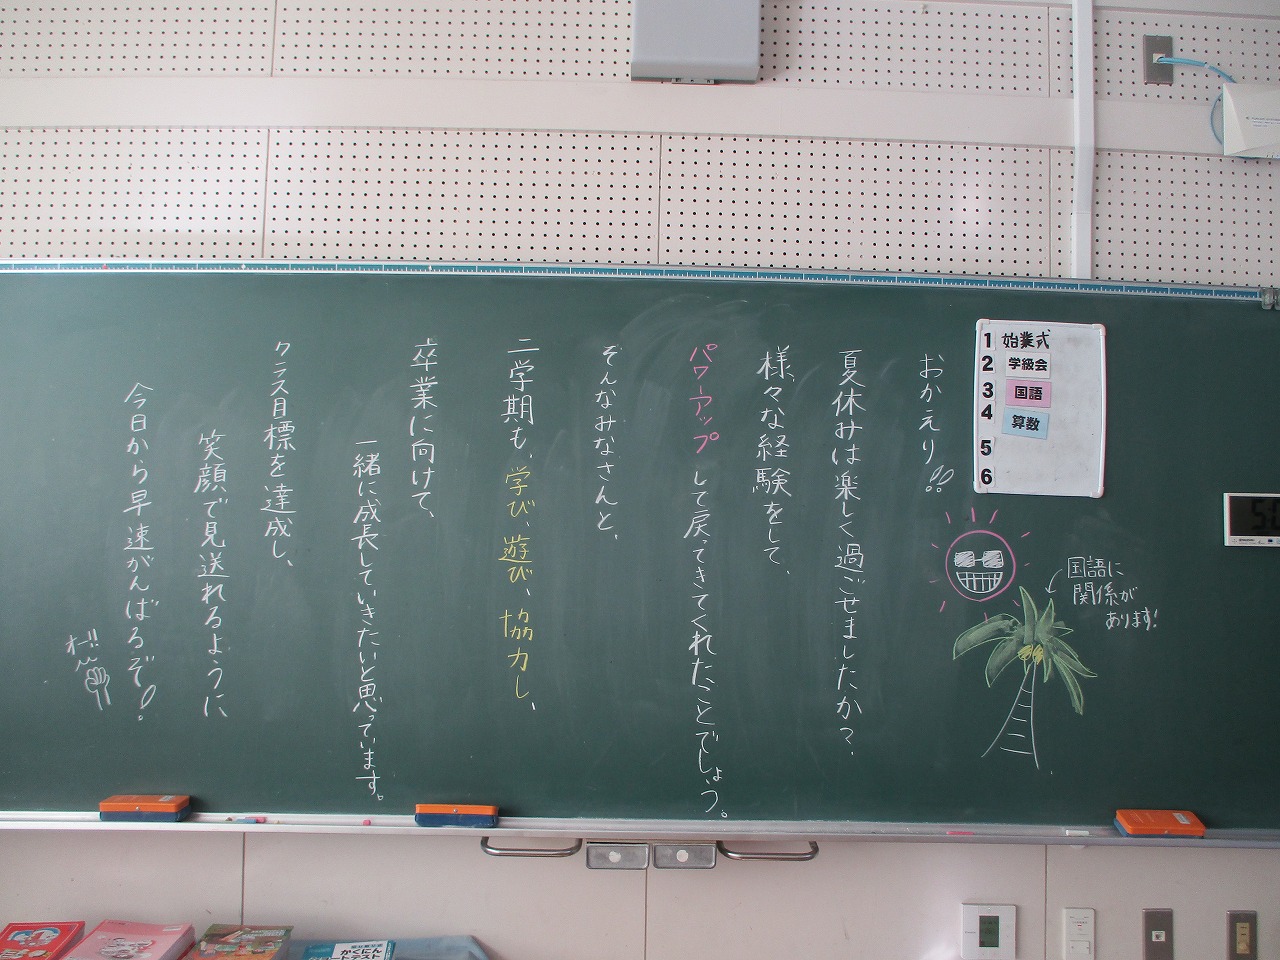 おかえり!!
夏休みは楽しく過ごせましたか?
様々な経験をして、
パワーアップして戻ってきてくれたことでしょう。
そんなみなさんと、
二学期も、学び、遊び、協力し、
卒業に向けて、
一緒に成長していきたいと思っています。
クラス目標を達成し、
笑顔で見送れるように
今日から早速がんばるぞ!
オー!!
1 始業式
2 学級会
3 国語
4 算数
5
6
国語に
関係が
あります!
かくにん
ートテスト